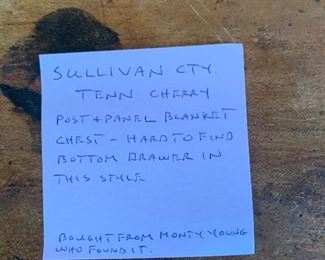 SULLIVAN CTY.
TENN CHERRY
POST & PANEL BLANKET
CHEST - HARD TO FIND
BOTTOM DRAWER IN
THIS STYLE
BOUGHT FROM MONTY YOUNG
WHO FOUND IT.